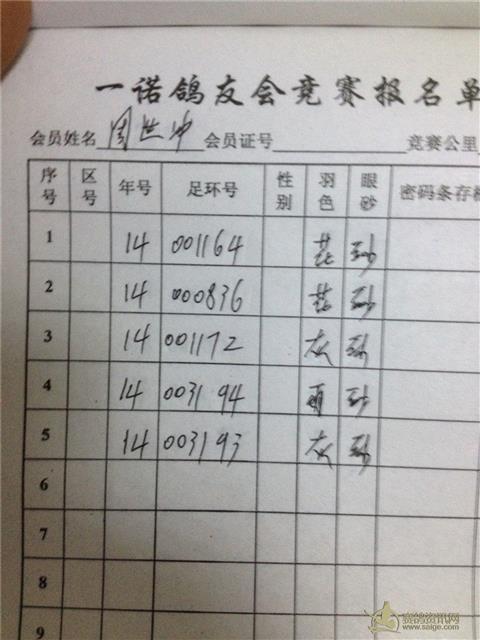 一诺鸽友会竞赛报名单
会员姓名 周世冲 会员证号 竞赛公里
序号 区号 年号 足环号 性别 羽色 眼砂 密码条存根
1 14 001164 花 砂
2 14 000836 花 砂
3 14 001172 灰 砂
4 14 003194 雨 砂
5 14 003193 灰 砂
6
7
8
9
赛鸽资讯网
www.saige.com